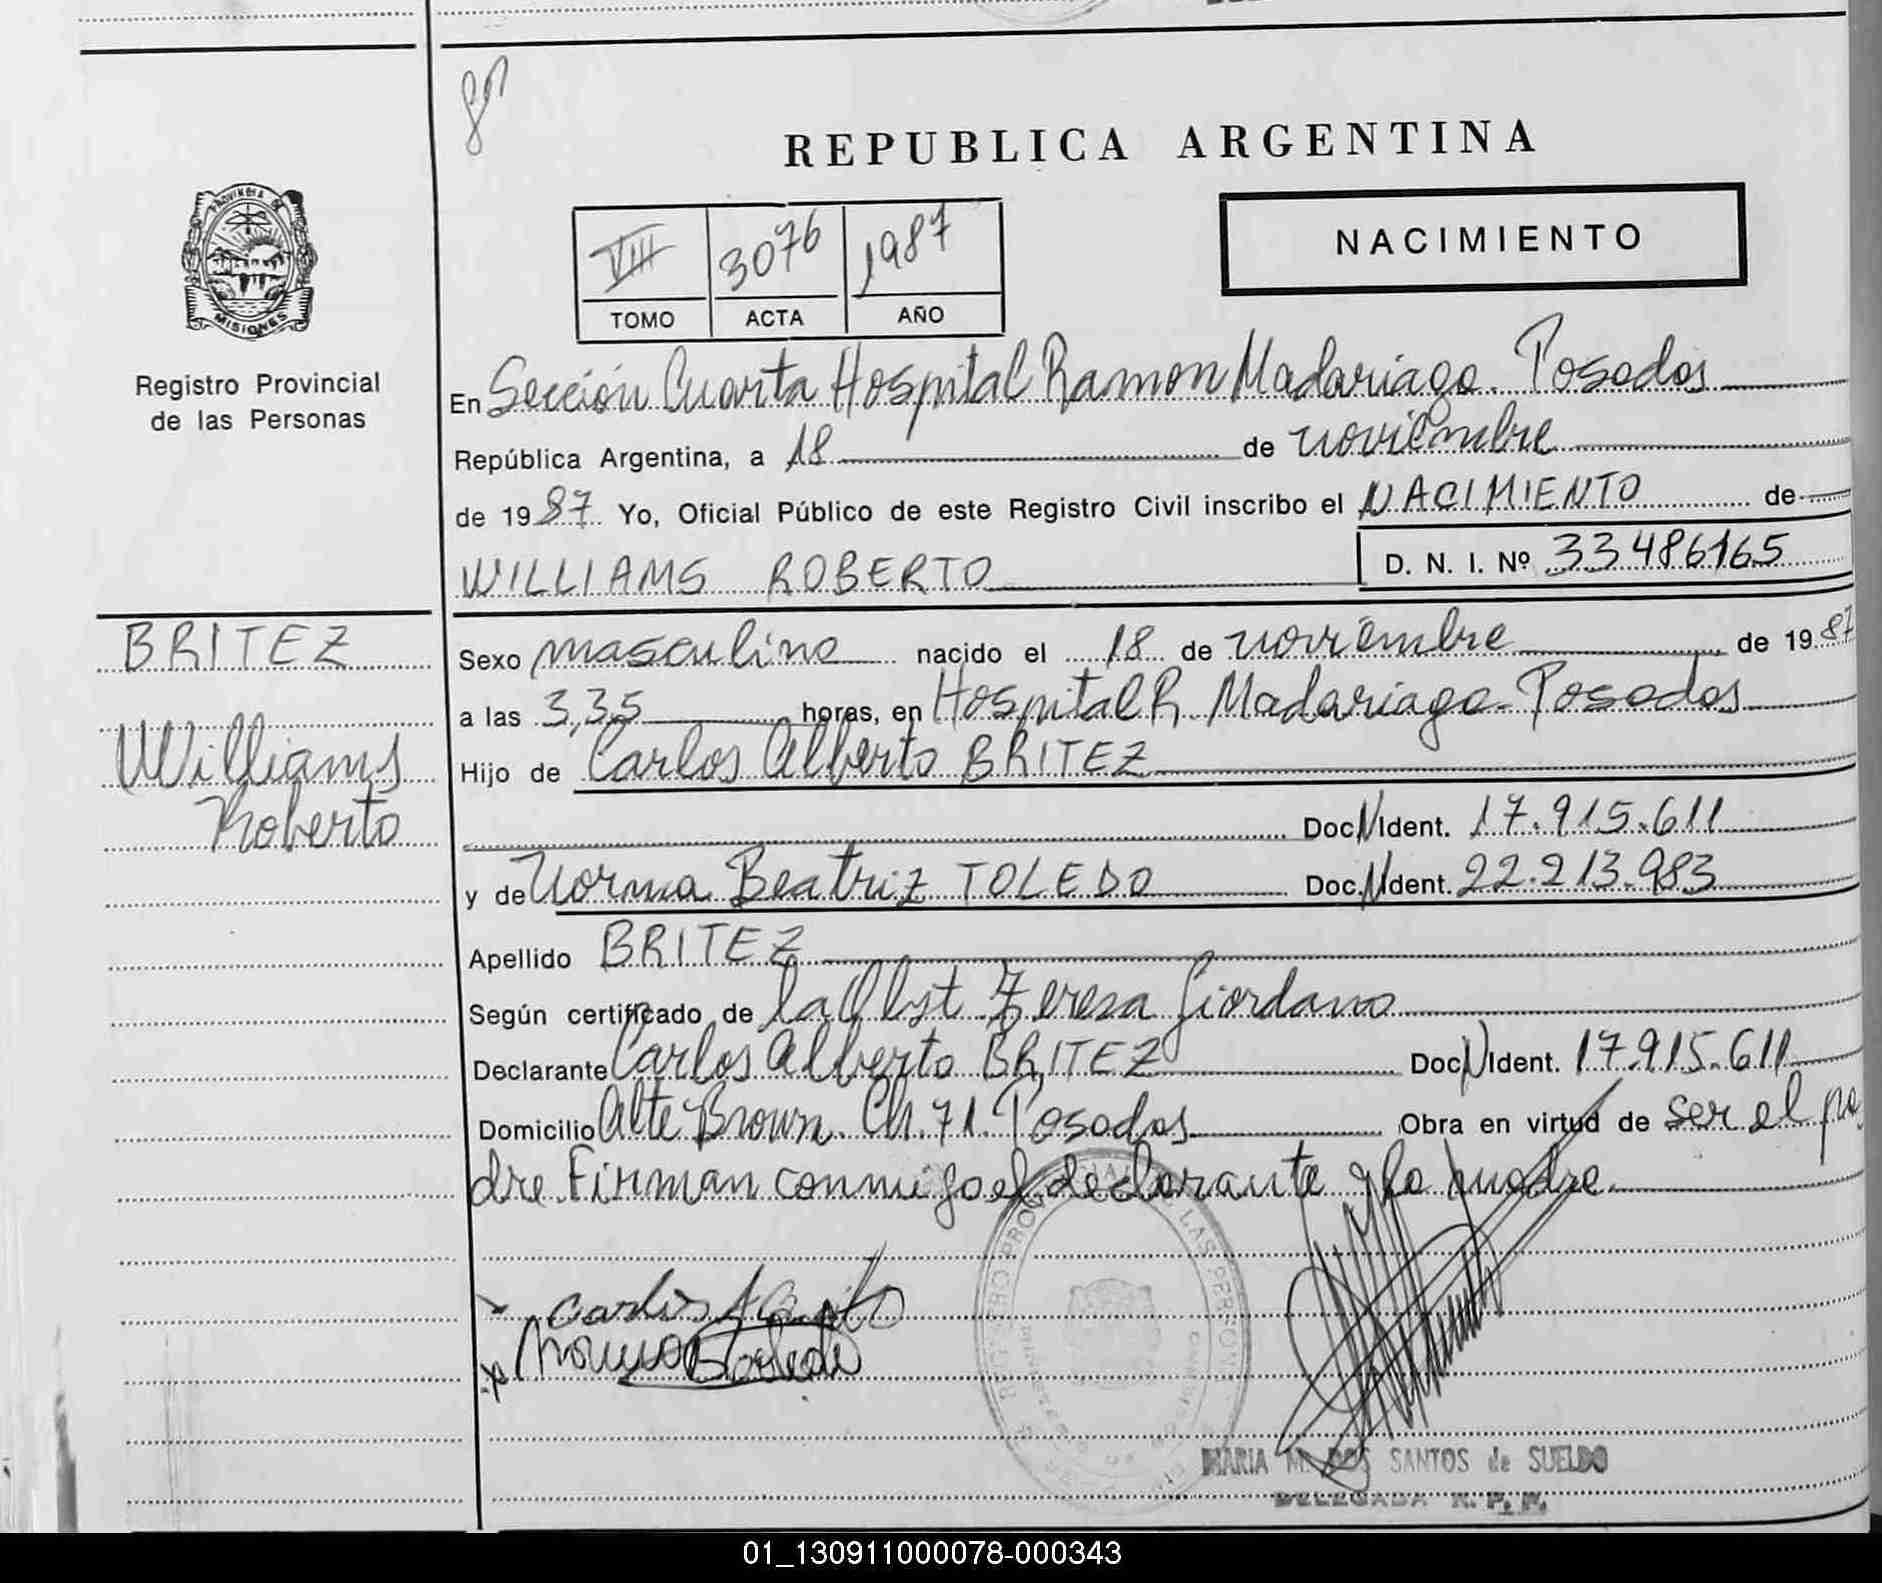 REPUBLICA ARGENTINA
PROVINCIA DE
MISIONES
Registro Provincial
de las Personas
VIII 3076 1987
TOMO ACTA AÑO
NACIMIENTO
En Sección Cuarta Hospital Ramon Madariaga. Posadas
República Argentina, a 18 de noviembre
de 1987 Yo, Oficial Público de este Registro Civil inscribo el NACIMIENTO de
WILLIAMS ROBERTO D. N. I. Nº 33486165
BRITEZ
Williams
Roberto
Sexo masculino nacido el 18 de noviembre de 1987
a las 3,35 horas, en Hospital R. Madariaga. Posadas
Hijo de Carlos Alberto BRITEZ
Doc N Ident. 17.915.611
y de Norma Beatriz TOLEDO Doc. N Ident. 22.213.983
Apellido BRITEZ
Según certificado de la Obst Teresa Giordano
Declarante Carlos Alberto BRITEZ Doc N Ident. 17.915.611
Domicilio Alte Brown. Ch. 71. Posadas Obra en virtud de ser el pa
dre. Firman conmigo el declarante y la madre.
MARIA M. DOS SANTOS de SUELDO
DELEGADA R. P. P.
01_130911000078-000343